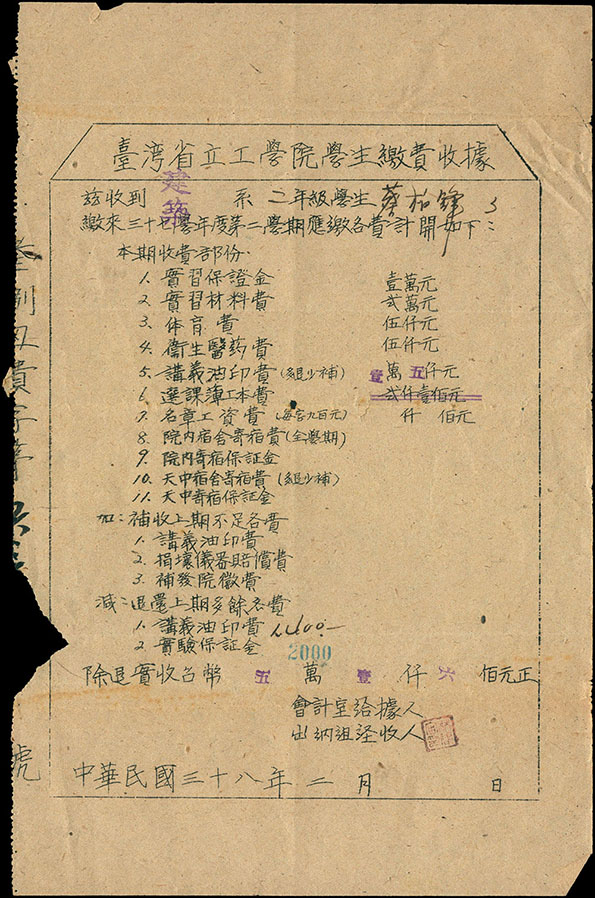 臺湾省立工學院學生繳費收據
茲收到 建築 系 二年級學生 蔡柏鋒
繳來三十七學年度第二學期應繳各費計開如下:
本期收費部份
1. 實習保證金 壹萬元
2. 實習材料費 貳萬元
3. 体育費 伍仟元
4. 衛生醫药費 伍仟元
5. 講義油印費(多退少補) 壹萬五仟元
6. 選課簿工本費 貳仟壹佰元
7. 名章工資費(每字九百元) 仟 佰元
8. 院内宿舍寄宿費(全學期)
9. 院内寄宿保証金
10. 天中宿舍寄宿費(多退少補)
11. 天中寄宿保証金
加:補收上期不足各費
1. 講義油印費
2. 損壞儀器賠償費
3. 補發院徽費
減:退還上期多餘各費
1. 講義油印費
2 實驗保証金 2000
除退實收台幣 五 萬 壹 仟 六 佰元正
會計室給據人
出納組経收人
中華民國三十八年二月 日
號